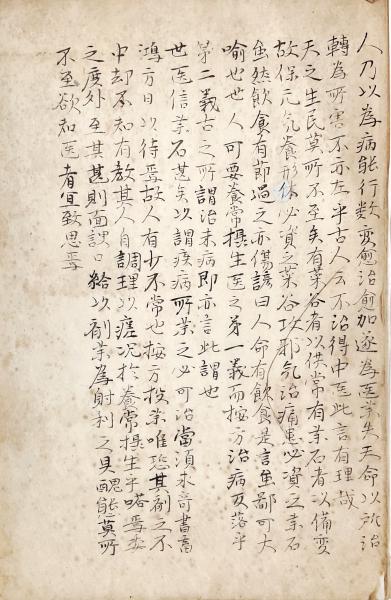 人乃以為病能行数変愈治愈加遂為医手失天命以所治
轉為所害不亦左乎古人云不治得中医此言有理哉
天之生民莫所不至矣有菜谷者以供常有薬石者以備変
故保元氣養形体必資之菜谷攻邪氣治痛患必資之薬石
虽然飲食有節過之亦傷諺曰人命有飲食是言虽鄙可大
喻也世人可要養常攝生医之第一義而按方治病又落乎
第二義古之所謂治未病即亦言此謂也
世医信薬石甚矣以謂疾病所業之必可治當須求奇書
鴻方日以待焉故人有少不常也按方投薬唯恐其剤之不
中却不知有教其人自調理以瘥况於養常攝生乎嗟焉委
之度外至其甚則面諛口給以剤薬為射利之具醜態莫所
不至欲知医者宜致思焉